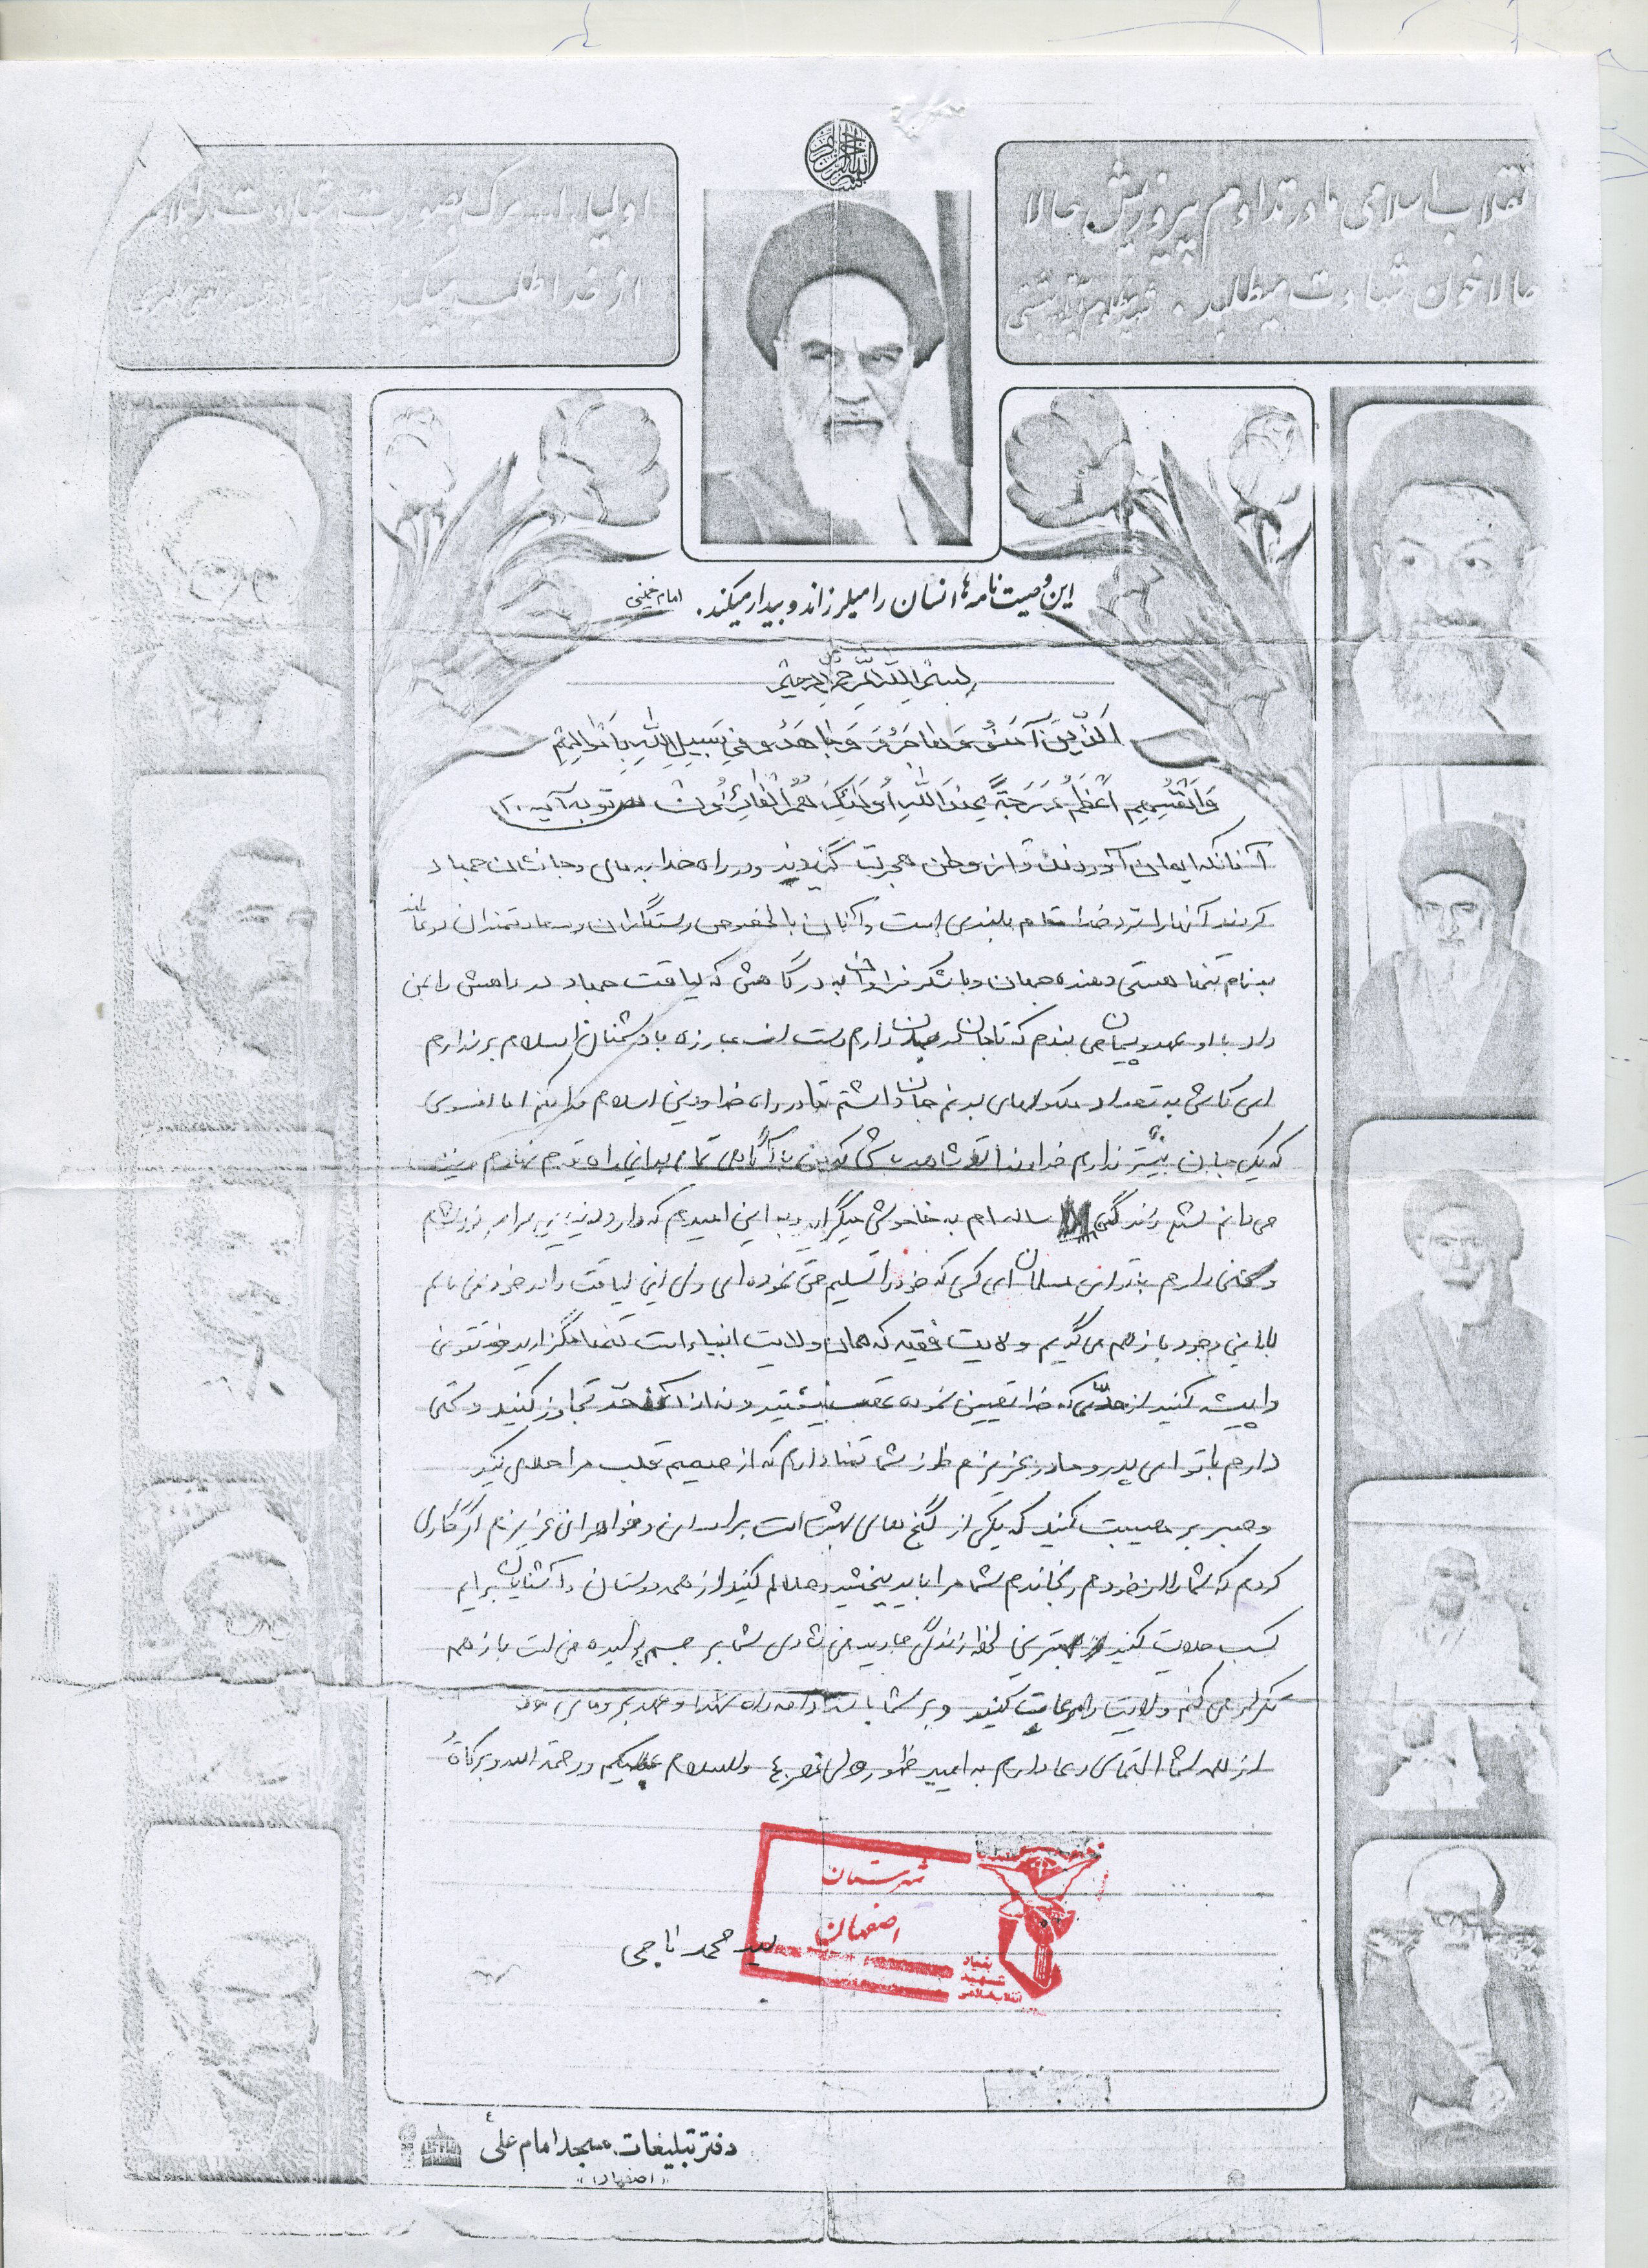 انقلاب اسلامی مادر تداوم پیروزیش حالا
حالا خون شهادت میطلبد. شهید مظلوم بهشتی
اولیاء مرگ بصورت شهادت را
از خدا طلب میکنند
این وصیت نامه ها انسان را میلرزاند و بیدار میکند. امام خمینی
بسم الله الرحمن الرحیم
اَلَّذینَ آمَنُو وَ هاجَرُو وَ جاهَدُو فی سَبیلِ اللهِ بِاَمْوالِهِمْ
وَ اَنْفُسِهِم اَعْظَمُ دَرَجَةً عِنْدَ اللهِ اُولئِکَ هُمُ الْفائِزُونَ توبه آیه ۲۰
آنانکه ایمان آوردند و از وطن هجرت گزیدند و در راه خدا به مال و جانشان جهاد
کردند آنها را نزد خدا مقام بلندی است و آنان بالخصوص رستگاران و سعادتمندان دو عالمند
به نام تنها هستی دهنده جهان و با شکر فراوان به درگاهش که لیاقت جهاد در راهش را بمن
داد با او عهد و پیمان می بندم که تا جان در بدن دارم دست از مبارزه با دشمنان اسلام برندارم
ای کاش به تعداد سلولهای بدنم جان داشتم تا در راه خدا و دین اسلام فدا کنم اما افسوس
که یک جان بیشتر ندارم خداوندا تو شاهد باش که من با آگاهی تمام به این راه قدم نهادم و نیز
می دانم شمع زندگی ساله ام به خاموشی میگراید و به این امیدم که
و سخنی دارم با تو ای مسلمان ای کسی که خود را تسلیم حق نموده ای ولی این لیاقت را در خود نمی بینم
با این وجود باز هم می گویم ولایت فقیه که همان ولایت انبیاء است تنها مگذارید و تقوی
را پیشه کنید از حدی که خدا تعیین نموده عقب نیفتید و نه از آن حد تجاوز کنید و سخنی
دارم با تو ای پدر و مادر عزیزم از شما تمنا دارم که از صمیم قلب مرا حلال کنید
و صبر بر مصیبت کنید که یکی از گنج های بهشت است برادران و خواهران عزیزم اگر کاری
کردم که شما را از خودم رنجاندم شما مرا باید ببخشید و حلالم کنید از همه دوستان و آشنایان برایم
کسب حلالیت کنید بهترین لحظه زندگی جاوید من شادی شما بر جسم پوسیده من است باز هم
تکرار می کنم ولایت را رعایت کنید و بر شما باد ادامه راه شهدا و
از همه شما التماس دعا دارم به امید ظهور ولی عصر عج والسلام علیکم و رحمة الله و برکاته
شهرستان
اصفهان
بنیاد
شهید
انقلاب اسلامی
سید محمد تاجی
دفتر تبلیغات مسجد امام علی ع
«اصفهان»